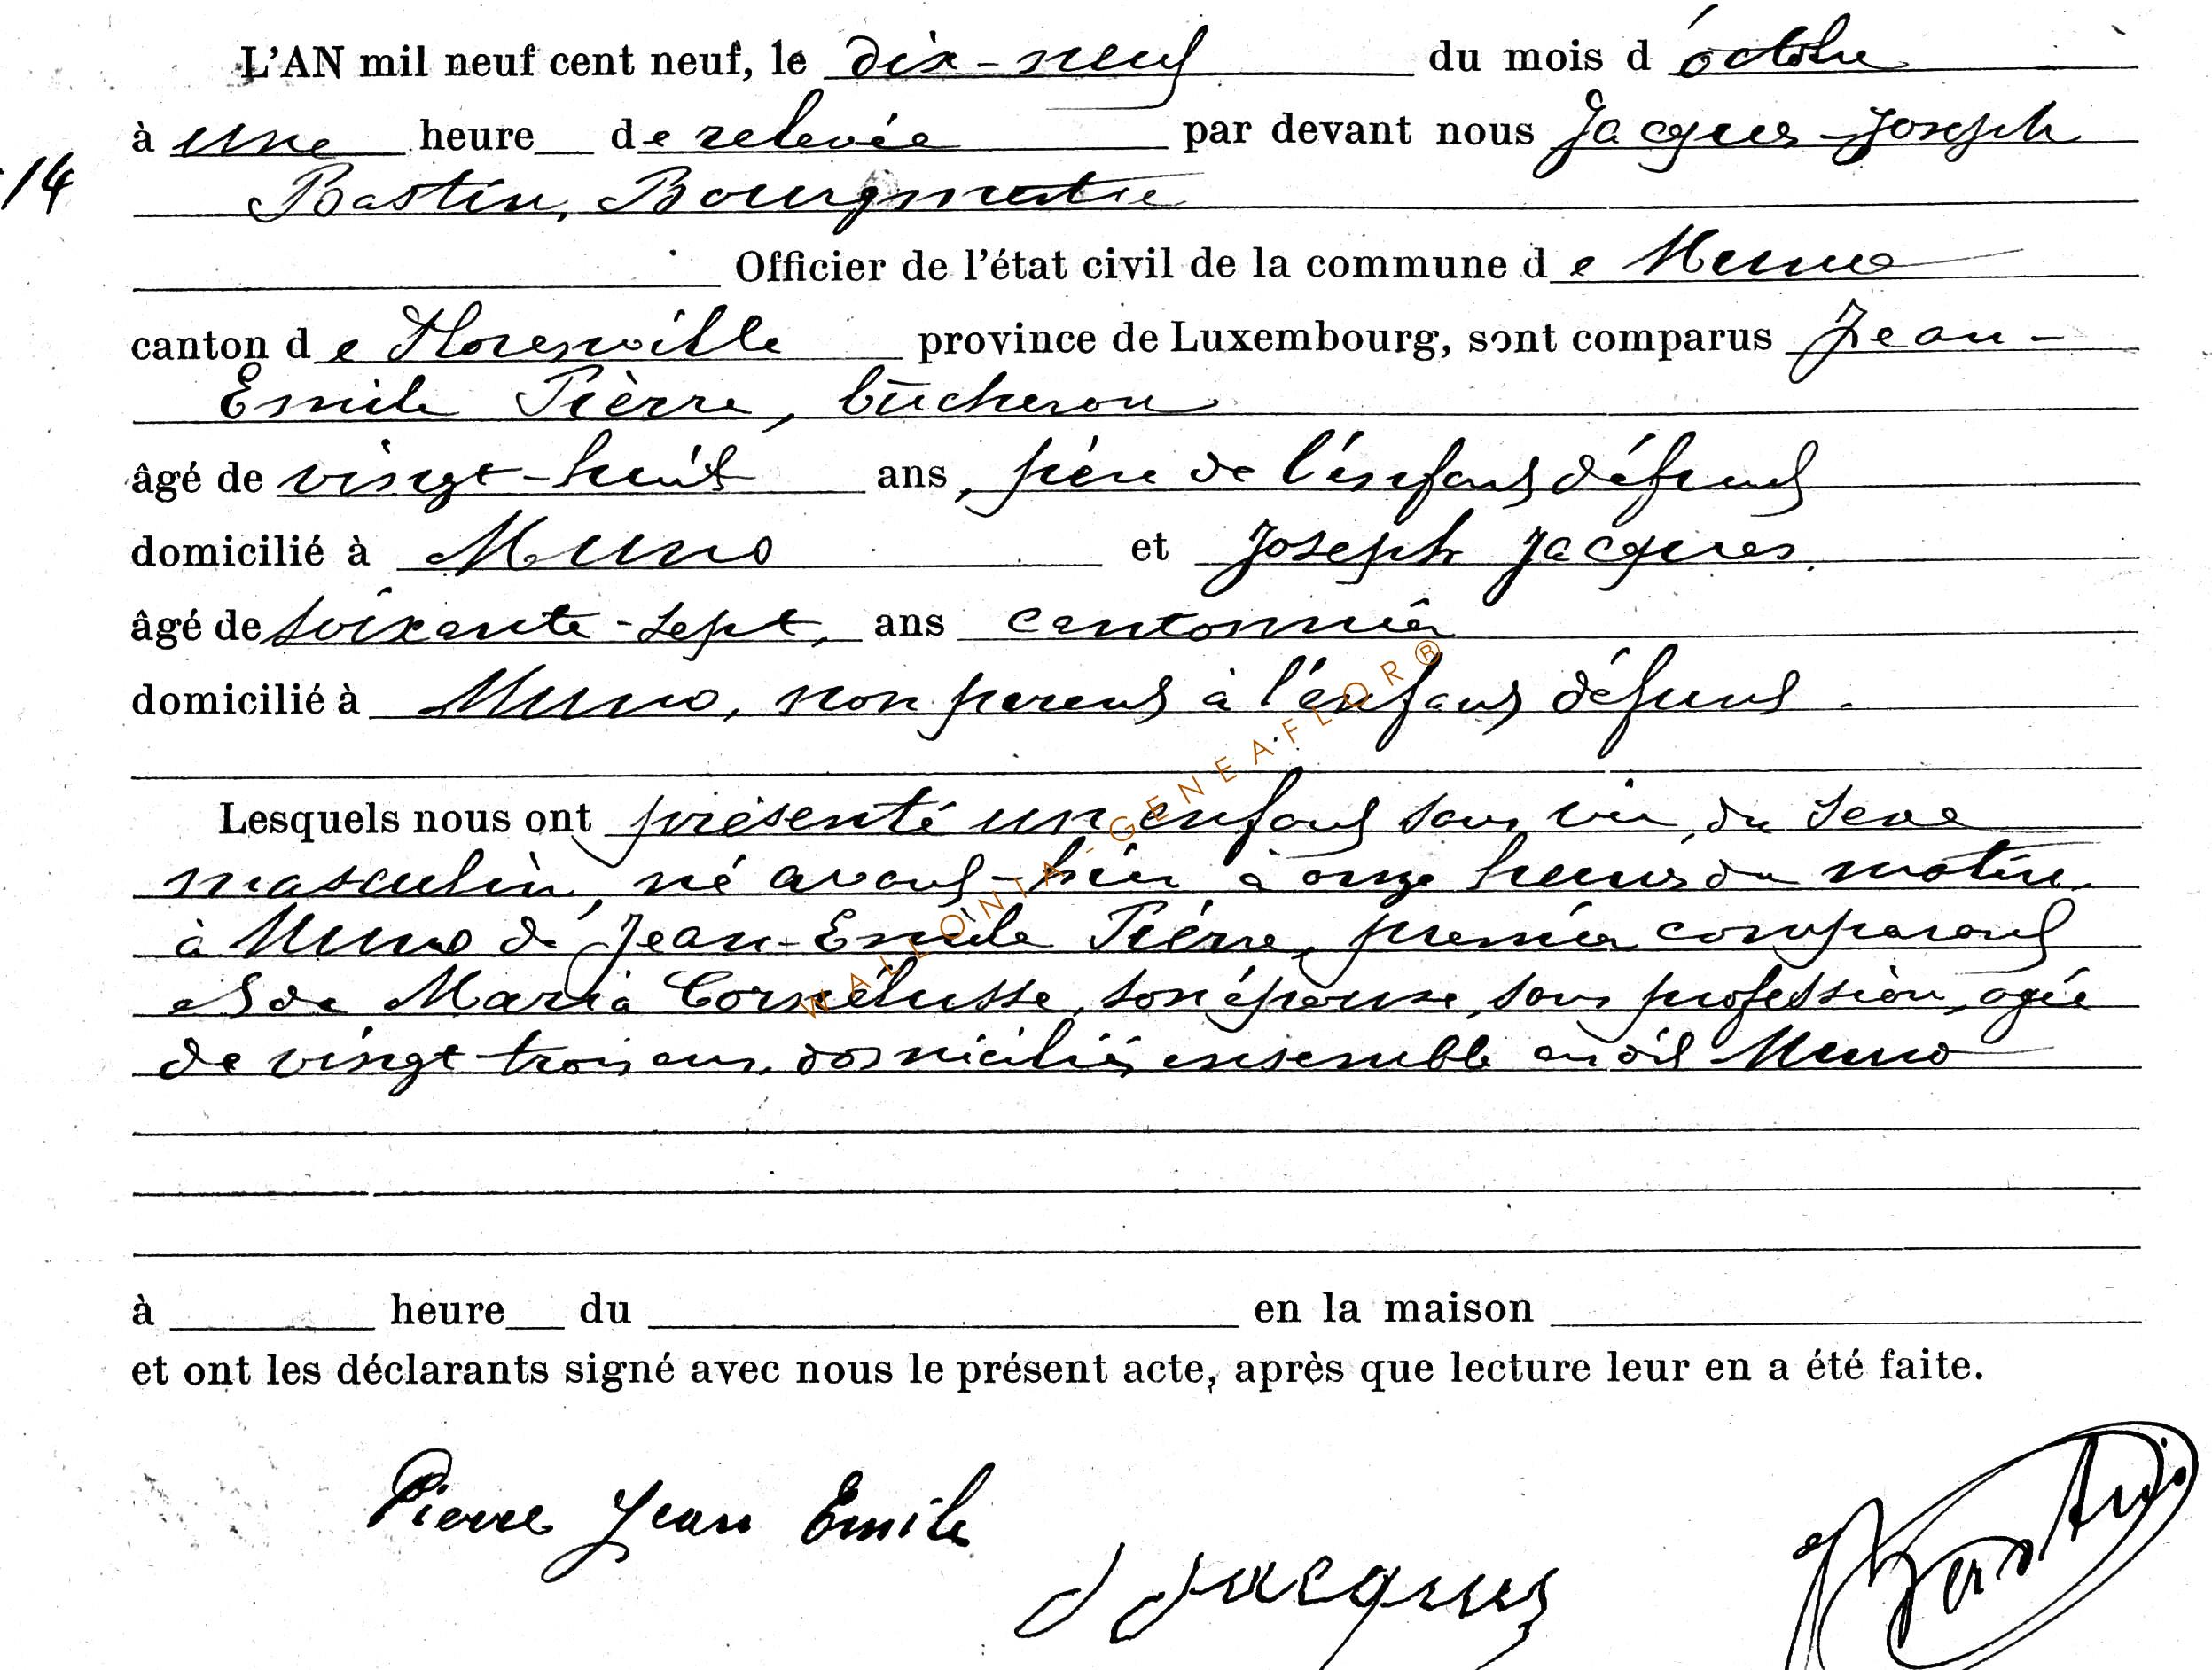 L'AN mil neuf cent neuf, le dix-neuf du mois d'octobre
à une heure de relevée par devant nous Jacques-Joseph
14
Bastin, Bourgmestre
Officier de l'état civil de la commune de Muno
canton de Florenville province de Luxembourg, sont comparus Jean-
Emile Pierre, bûcheron
âgé de vingt-huit ans, père de l'enfant défunt
domicilié à Muno et Joseph Jacques.
âgé de soixante-sept, ans cantonnier
domicilié à Muno, non parent à l'enfant défunt.
Lesquels nous ont présenté un enfant sans vie, du sexe
masculin, né avant-hier à onze heures du matin
à Muno de Jean-Emile Pierre, premier comparant
et de Maria Cornélusse, son épouse, sans profession, agée
de vingt-trois ans, domiciliés ensemble au dit Muno
à heure du en la maison
et ont les déclarants signé avec nous le présent acte, après que lecture leur en a été faite.
Pierre Jean Emile
J Jacques
J Bastin
WALLONIA-GENEAFLOR®